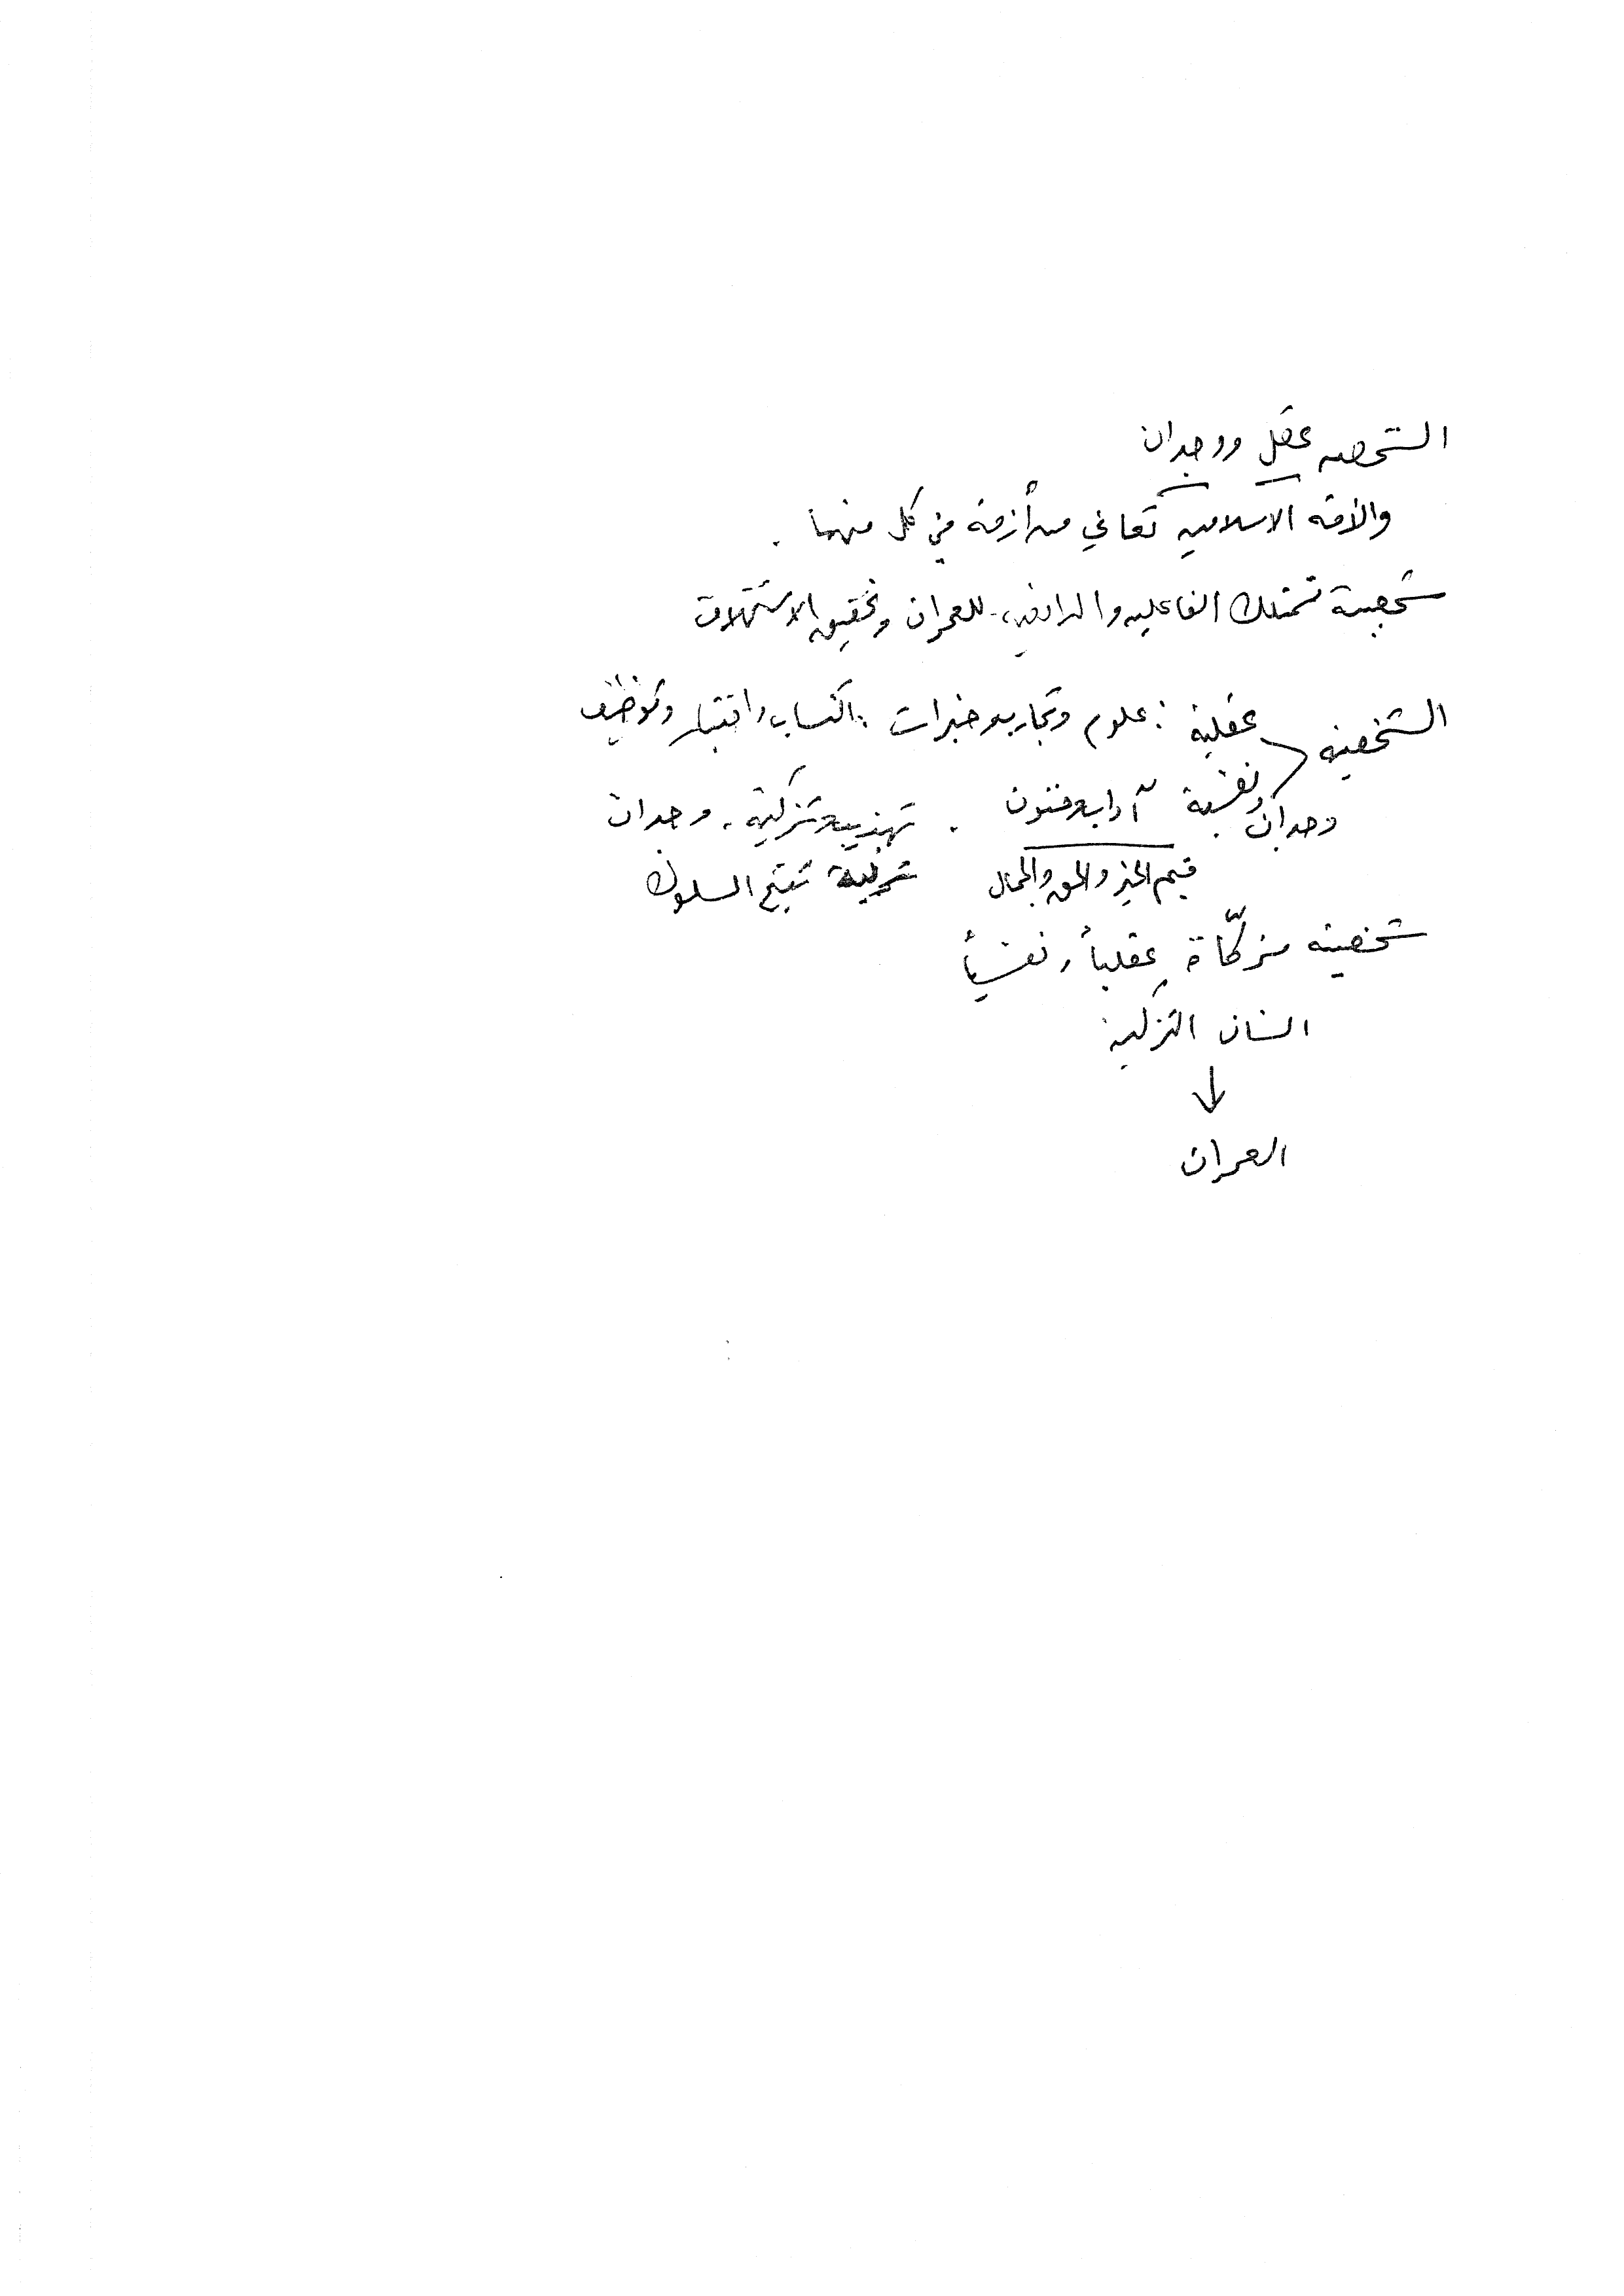 الشخصية عقل ووجدان
والأمة الاسلامية تعاني من أزمة في كل منهما .
شخصية تمتلك الفاعلية والدافعية للعمران وتحقيق الاستخلاف
الشخصية عقلية : علوم وتجارب وخبرات : اكتساب واختبار وتوظيف
وجدان ونفسية آداب وفنون . تهذيب وتزكية . وجدان
قيم الخير والحق والجمال تزكية تنتج السلوك
شخصية مزكّاة عقلياً ونفسياً
انسان التزكية
↓
العمران